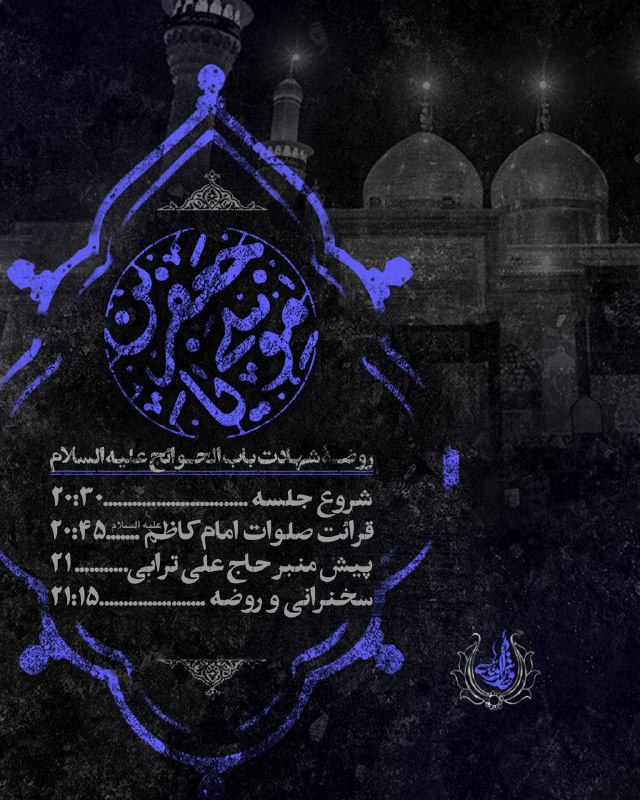 موسی بن جعفر
روضهٔ شهادت باب الحوائج علیه السلام
شروع جلسه ............................ ۲۰:۳۰
قرائت صلوات امام کاظم علیه السلام ........ ۲۰:۴۵
پیش منبر حاج علی ترابی............ ۲۱
سخنرانی و روضه .......................... ۲۱:۱۵